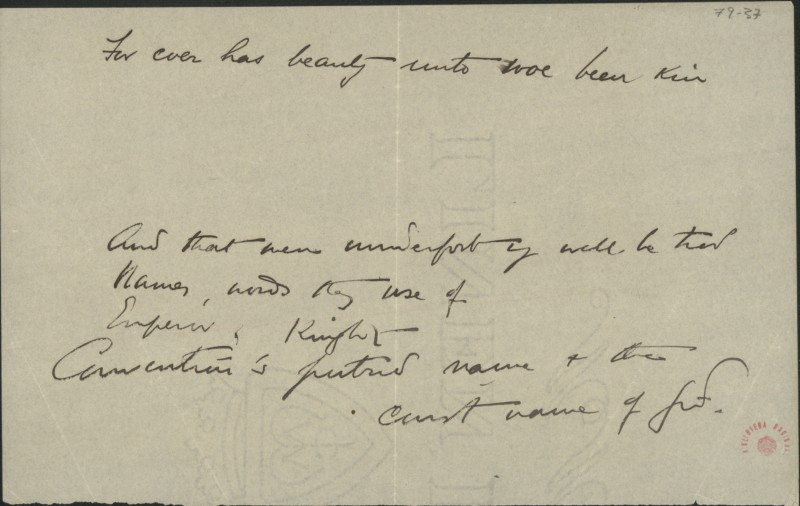 79-37
For ever has beauty unto woe been kin
And that were underfoot will be trod
Names, words they use of
Emperor, Knight
Convention's putrid name & the
curst name of God.